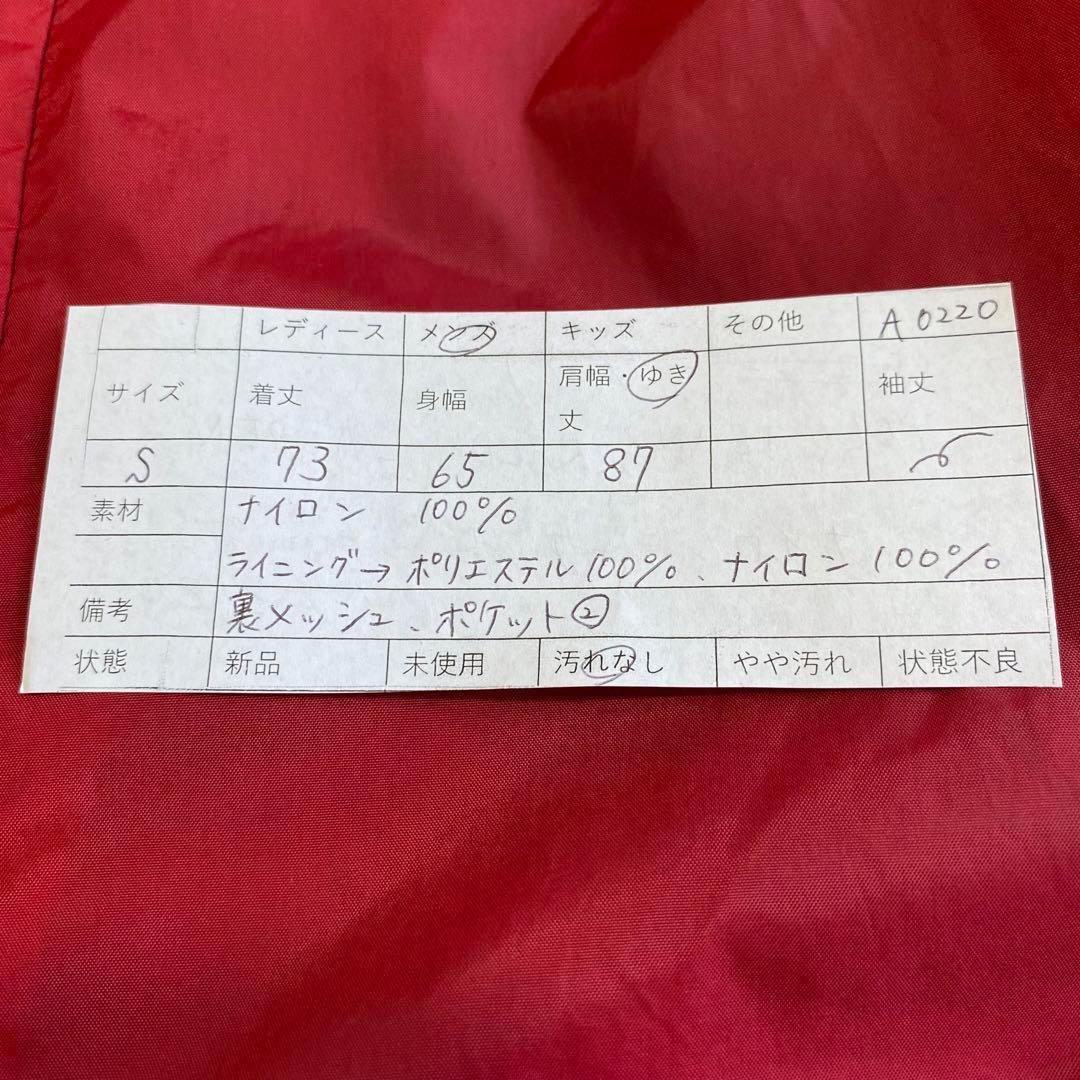 レディース メンズ キッズ その他 A0220
サイズ 着丈 身幅 肩幅・ゆき丈 袖丈
S 73 65 87
素材 ナイロン 100%
ライニング→ポリエステル100%、ナイロン100%
備考 裏メッシュ、ポケット②
状態 新品 未使用 汚れなし やや汚れ 状態不良